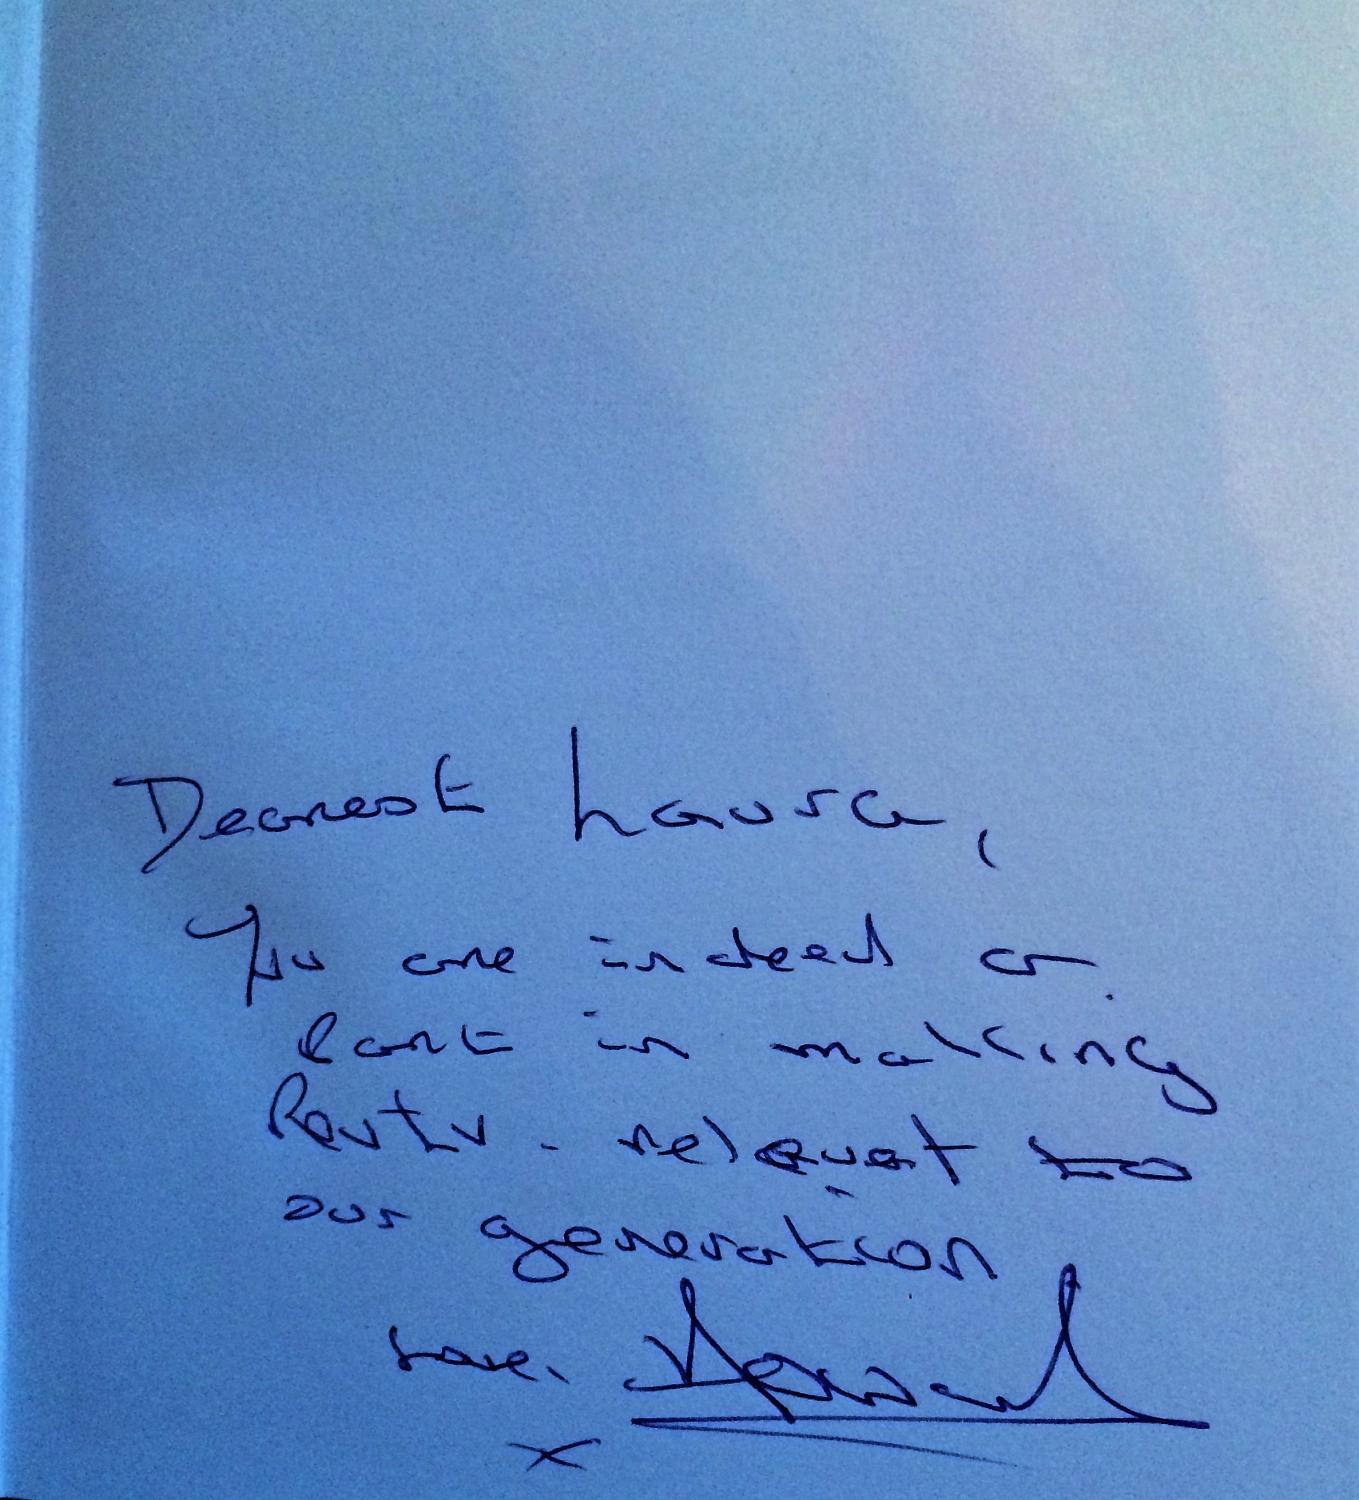 Dearest Laura,
You are indeed a
part in making
relevant to
our generation
Love,
x